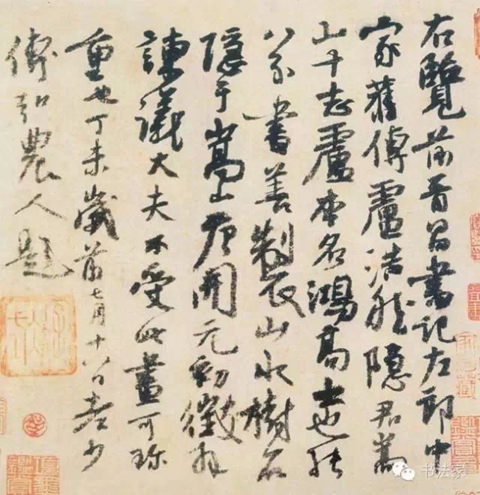 右覽前晉昌書記左郎中
家舊傳盧浩然隱君嵩
山十志盧本名鴻高士也能
八分書善製山水樹石
隱于嵩山唐開元初徵拜
諫議大夫不受此畫可珍
重也丁未歲前七月十八日老少
傅弘農人題
书法